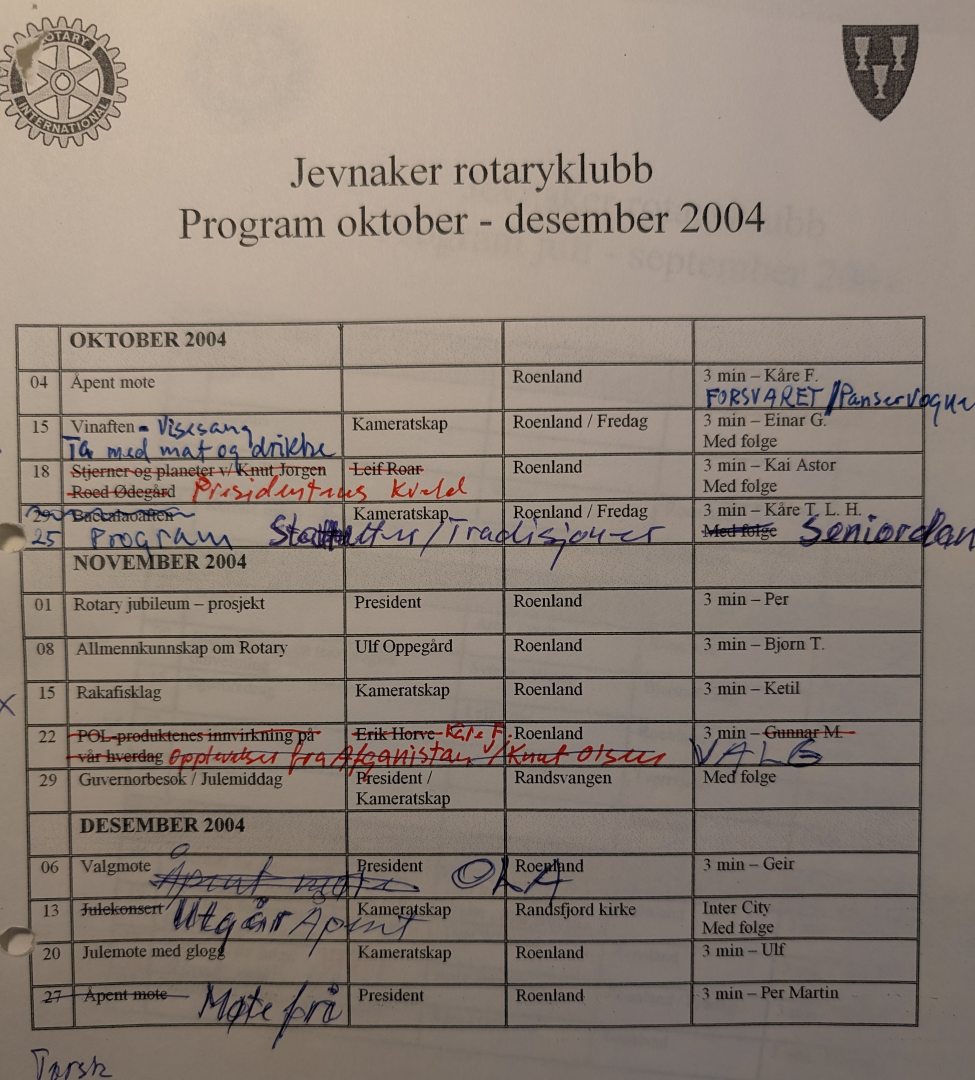 ROTARY
INTERNATIONAL
Jevnaker rotaryklubb
Program oktober - desember 2004
OKTOBER 2004
04 Åpent mote Roenland 3 min – Kåre F.
FORSVARET / Panservogner
15 Vinaften - Visesang Kameratskap Roenland / Fredag 3 min – Einar G.
Ta med mat og drikke Med folge
18 Stjerner og planeter v/ Knut Jorgen Leif Roar Roenland 3 min – Kai Astor
Roed Ødegård Presidentens Kveld Med folge
29 Baccalaoaften Kameratskap Roenland / Fredag 3 min – Kåre T. L. H.
25 Program /Tradisjoner Med folge Seniordan
NOVEMBER 2004
01 Rotary jubileum – prosjekt President Roenland 3 min – Per
08 Allmennkunnskap om Rotary Ulf Oppegård Roenland 3 min – Bjorn T.
x 15 Rakafisklag Kameratskap Roenland 3 min – Ketil
22 POL-produktenes innvirkning på Erik Horve Kåre F. Roenland 3 min – Gunnar M.
vår hverdag Opplevelser fra Afganistan / Knut Olsen VALG
29 Guvernorbesok / Julemiddag President / Randsvangen Med folge
Kameratskap
DESEMBER 2004
06 Valgmote Åpent møte President OLA Roenland 3 min – Geir
13 Julekonsert Utgår Åpent Kameratskap Randsfjord kirke Inter City
Med folge
20 Julemote med glogg Kameratskap Roenland 3 min – Ulf
27 Åpent mote Møte fri President Roenland 3 min – Per Martin
Torsk